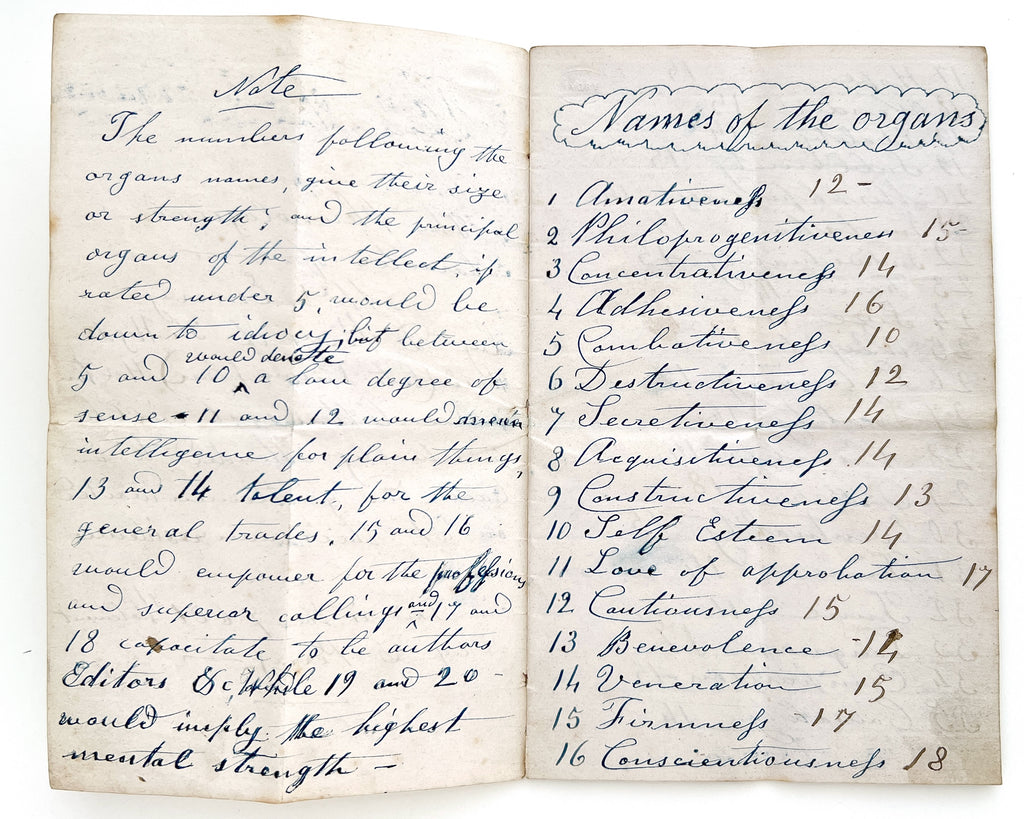 Note
The numbers following the
organs names, give their size
or strength; and the principal
organs of the intellect, if
rated under 5, would be
down to idiocy; but between
would denote
5 and 10 ^ a low degree of
sense - 11 and 12 would mean
intelligence for plain things,
13 and 14 talent, for the
general trades. 15 and 16
would empower for the professions
and superior callings and 17 and
18 capacitate to be authors
Editors &c, While 19 and 20 -
would imply the highest
mental strength -
Names of the organs
1 Amativeness 12 -
2 Philoprogenitiveness 15 -
3 Concentrativeness 14
4 Adhesiveness 16
5 Combativeness 10
6 Destructiveness 12
7 Secretiveness 14
8 Acquisitiveness 14
9 Constructiveness 13
10 Self Esteem 14
11 Love of approbation 17
12 Cautiousness 15
13 Benevolence - 14
14 Veneration 15
15 Firmness - 17
16 Conscientiousness 18